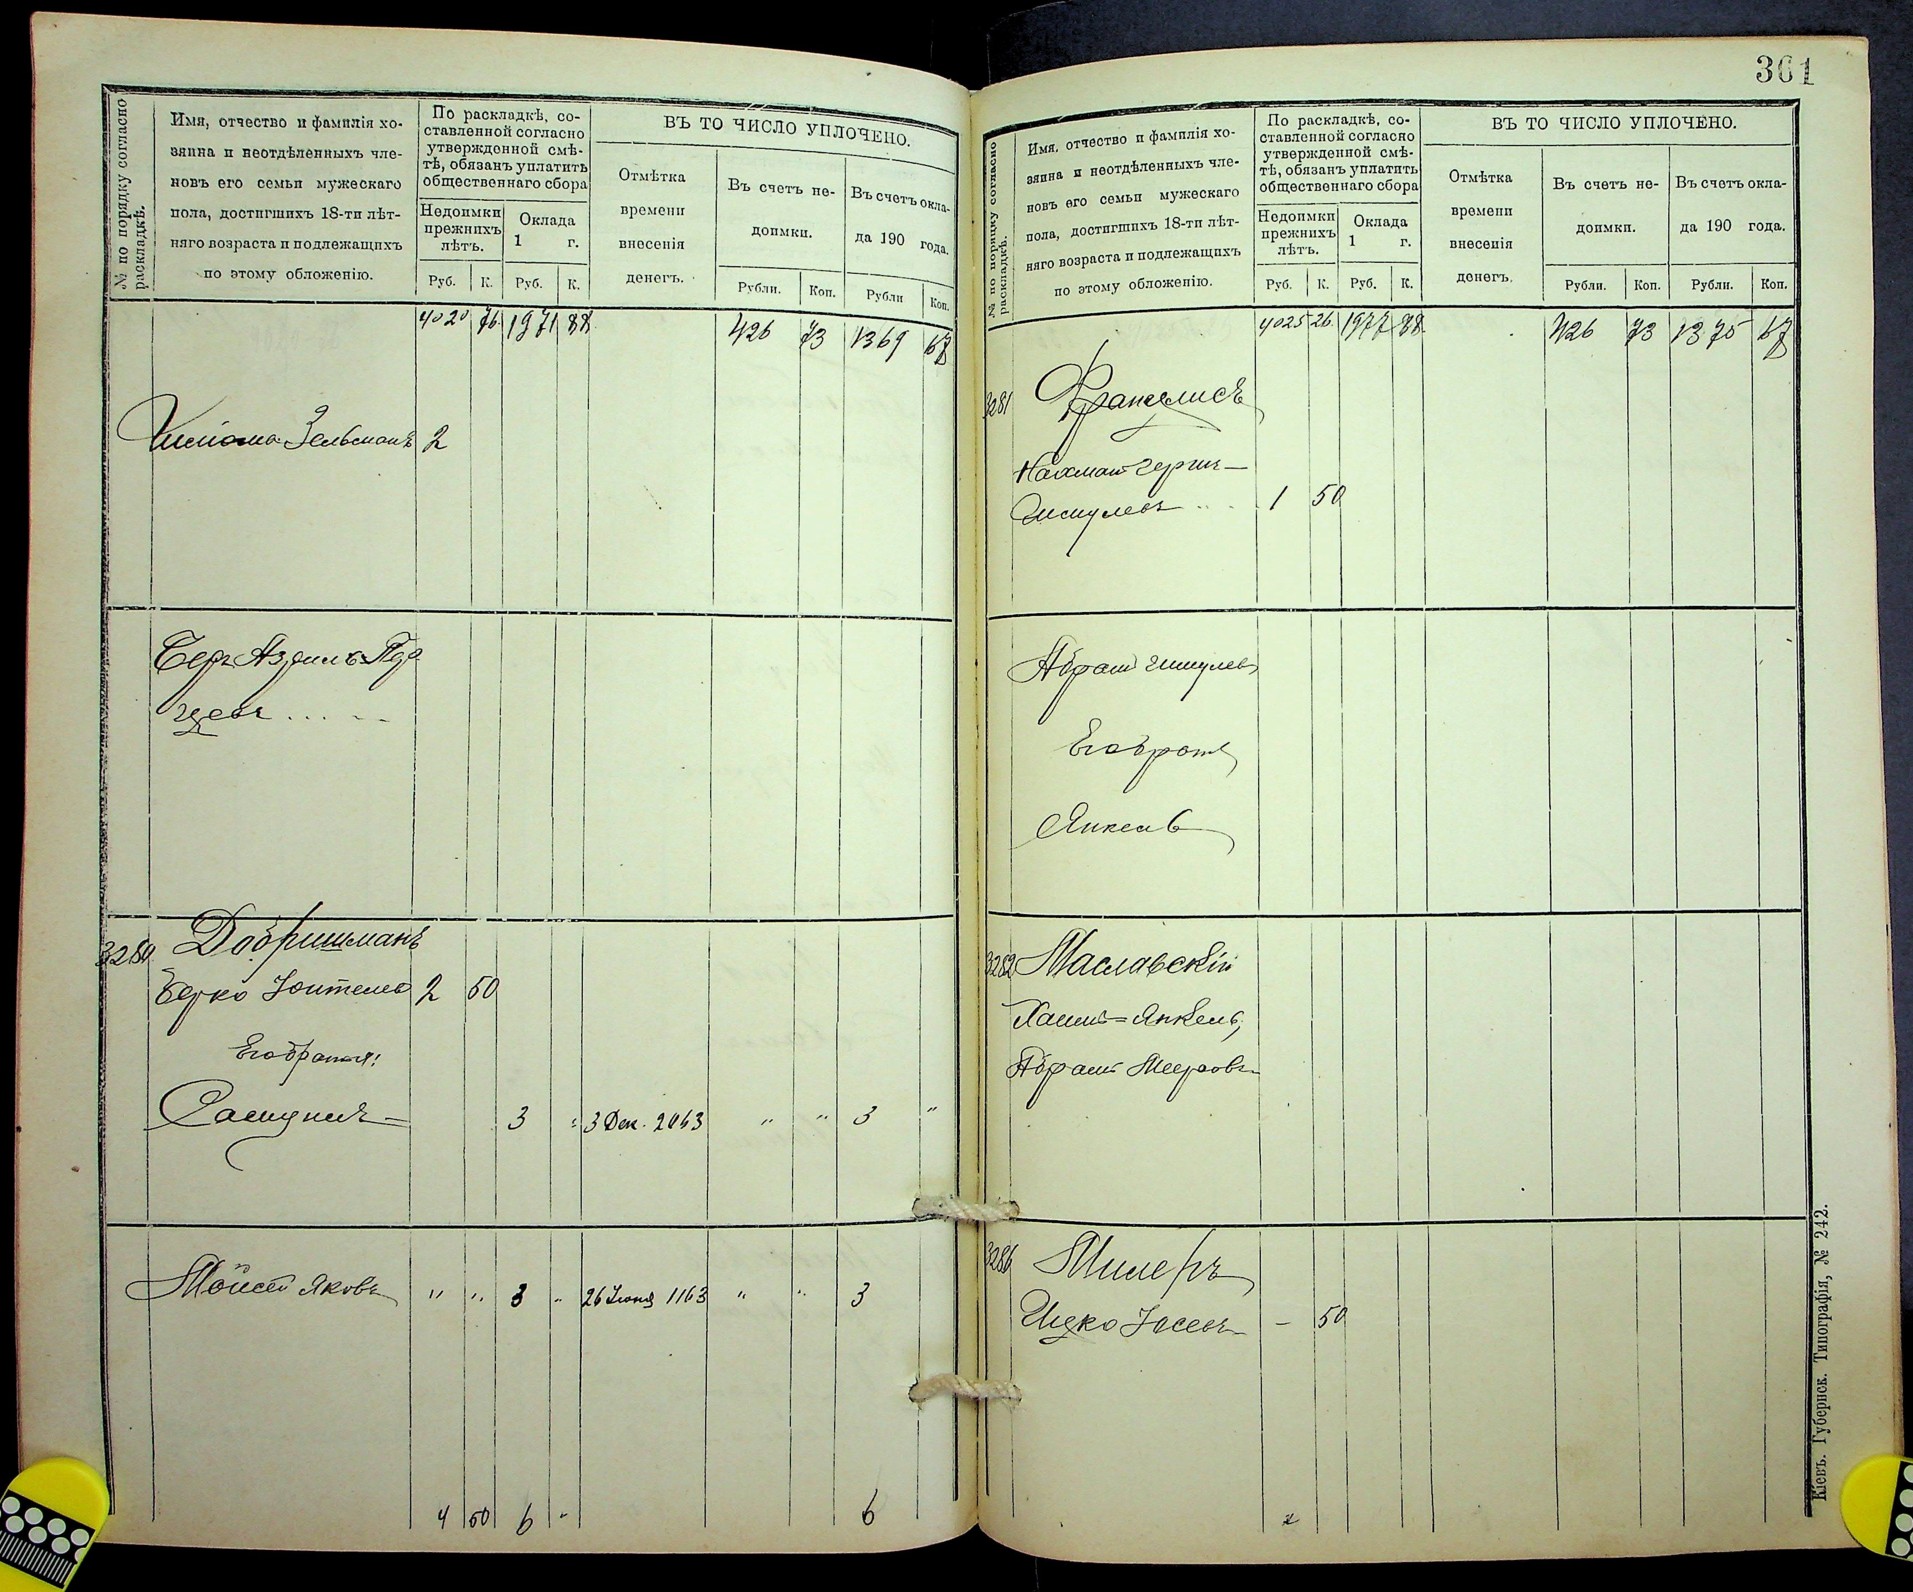 № по порядку согласно раскладкѣ.
Имя, отчество и фамилія хо-
зяина и неотдѣленныхъ чле-
новъ его семьи мужескаго
пола, достигшихъ 18-ти лѣт-
няго возраста и подлежащихъ
по этому обложенію.
По раскладкѣ, со-
ставленной согласно
утвержденной смѣ-
тѣ, обязанъ уплатить
общественнаго сбора
Недоимки прежнихъ лѣтъ.
Оклада 1 г.
Руб. К. Руб. К.
ВЪ ТО ЧИСЛО УПЛОЧЕНО.
Отмѣтка времени внесенія денегъ.
Въ счетъ не-
доимки.
Въ счетъ окла-
да 190 года.
Рубли. Коп. Рубли Коп.
4020 76 1971 88 426 73 1369 67
Зельманъ 2
Беръ Азриль
3280 Добришманъ
Берко 2 50
Его братья:
3 " 3 Дек. 2043 " " 3 "
Мойсей Яковъ " " 3 " 26 Іюня 1163 " " 3
4 50 6 " 6
361
№ по порядку согласно раскладкѣ.
Имя, отчество и фамилія хо-
зяина и неотдѣленныхъ чле-
новъ его семьи мужескаго
пола, достигшихъ 18-ти лѣт-
няго возраста и подлежащихъ
по этому обложенію.
По раскладкѣ, со-
ставленной согласно
утвержденной смѣ-
тѣ, обязанъ уплатить
общественнаго сбора
Недоимки прежнихъ лѣтъ.
Оклада 1 г.
Руб. К. Руб. К.
ВЪ ТО ЧИСЛО УПЛОЧЕНО.
Отмѣтка времени внесенія денегъ.
Въ счетъ не-
доимки.
Въ счетъ окла-
да 190 года.
Рубли. Коп. Рубли. Коп.
4025 26 1977 88 426 73 1375 67
3281
Нахман Герш-
Шмулевъ 1 50
Абрам Шмулев
Его братъ
Янкель
3282 Маславскій
Хаим=Янкель,
Абрамъ Мееровъ
3286 Милеръ
Ицко Іосевъ - 50
Кіевъ. Губернск. Типографія, № 242.